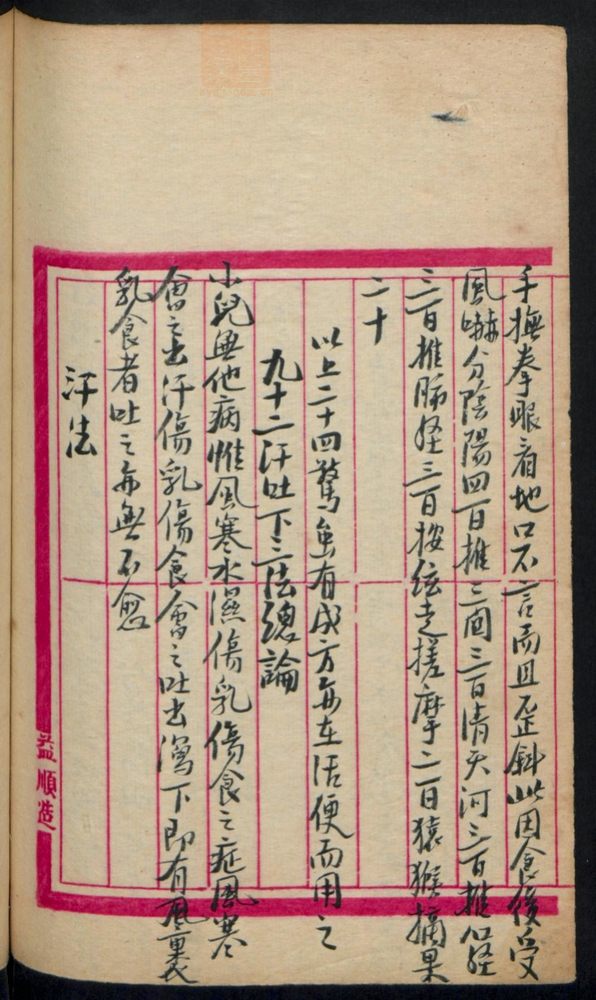 手撫拳眼看地口不言而且歪斜此因食後受
風嚇分陰陽四百推三関三百清天河三百推心経
三百推肺経三百按弦走搓摩二百猿猴摘果
二十
以上二十四驚虽有成方毎在活便而用之
九十二汗吐下三法總論
小兒無他病惟風寒水濕傷乳傷食之症風寒
會之去汗傷乳傷食會之吐去瀉下即有風裹
乳食者吐之毎無不愈
汗法
益順造